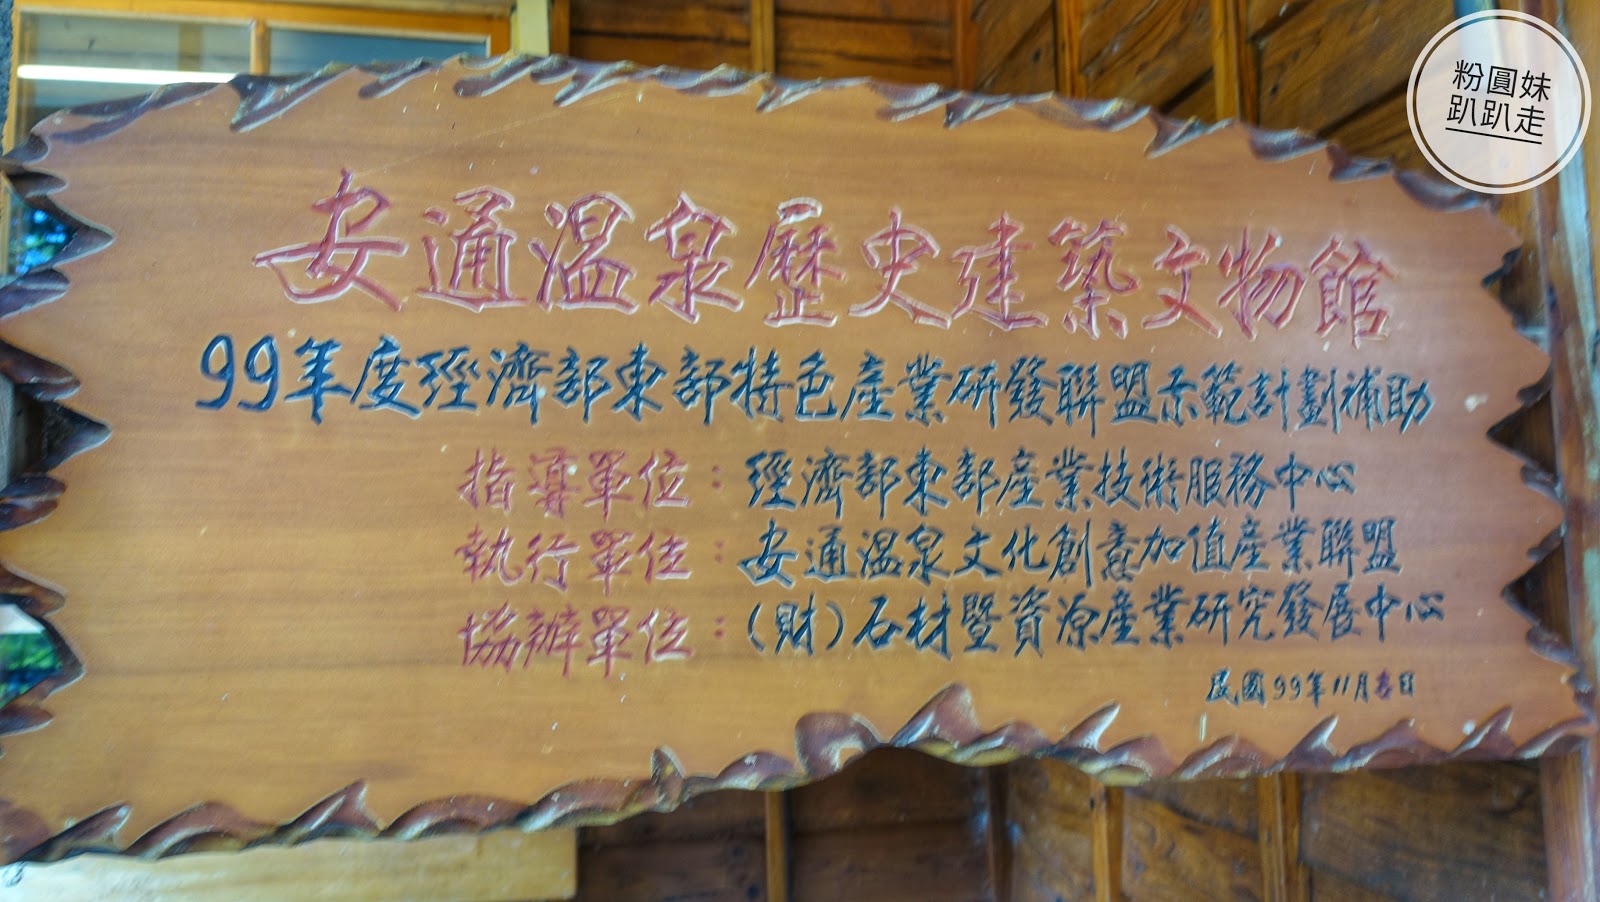 粉圓妹
趴趴走
安通溫泉歷史建築文物館
99年度經濟部東部特色產業研發聯盟示範計劃補助
指導單位：經濟部東部產業技術服務中心
執行單位：安通溫泉文化創意加值產業聯盟
協辦單位：(財)石材暨資源產業研究發展中心
民國99年11月 日